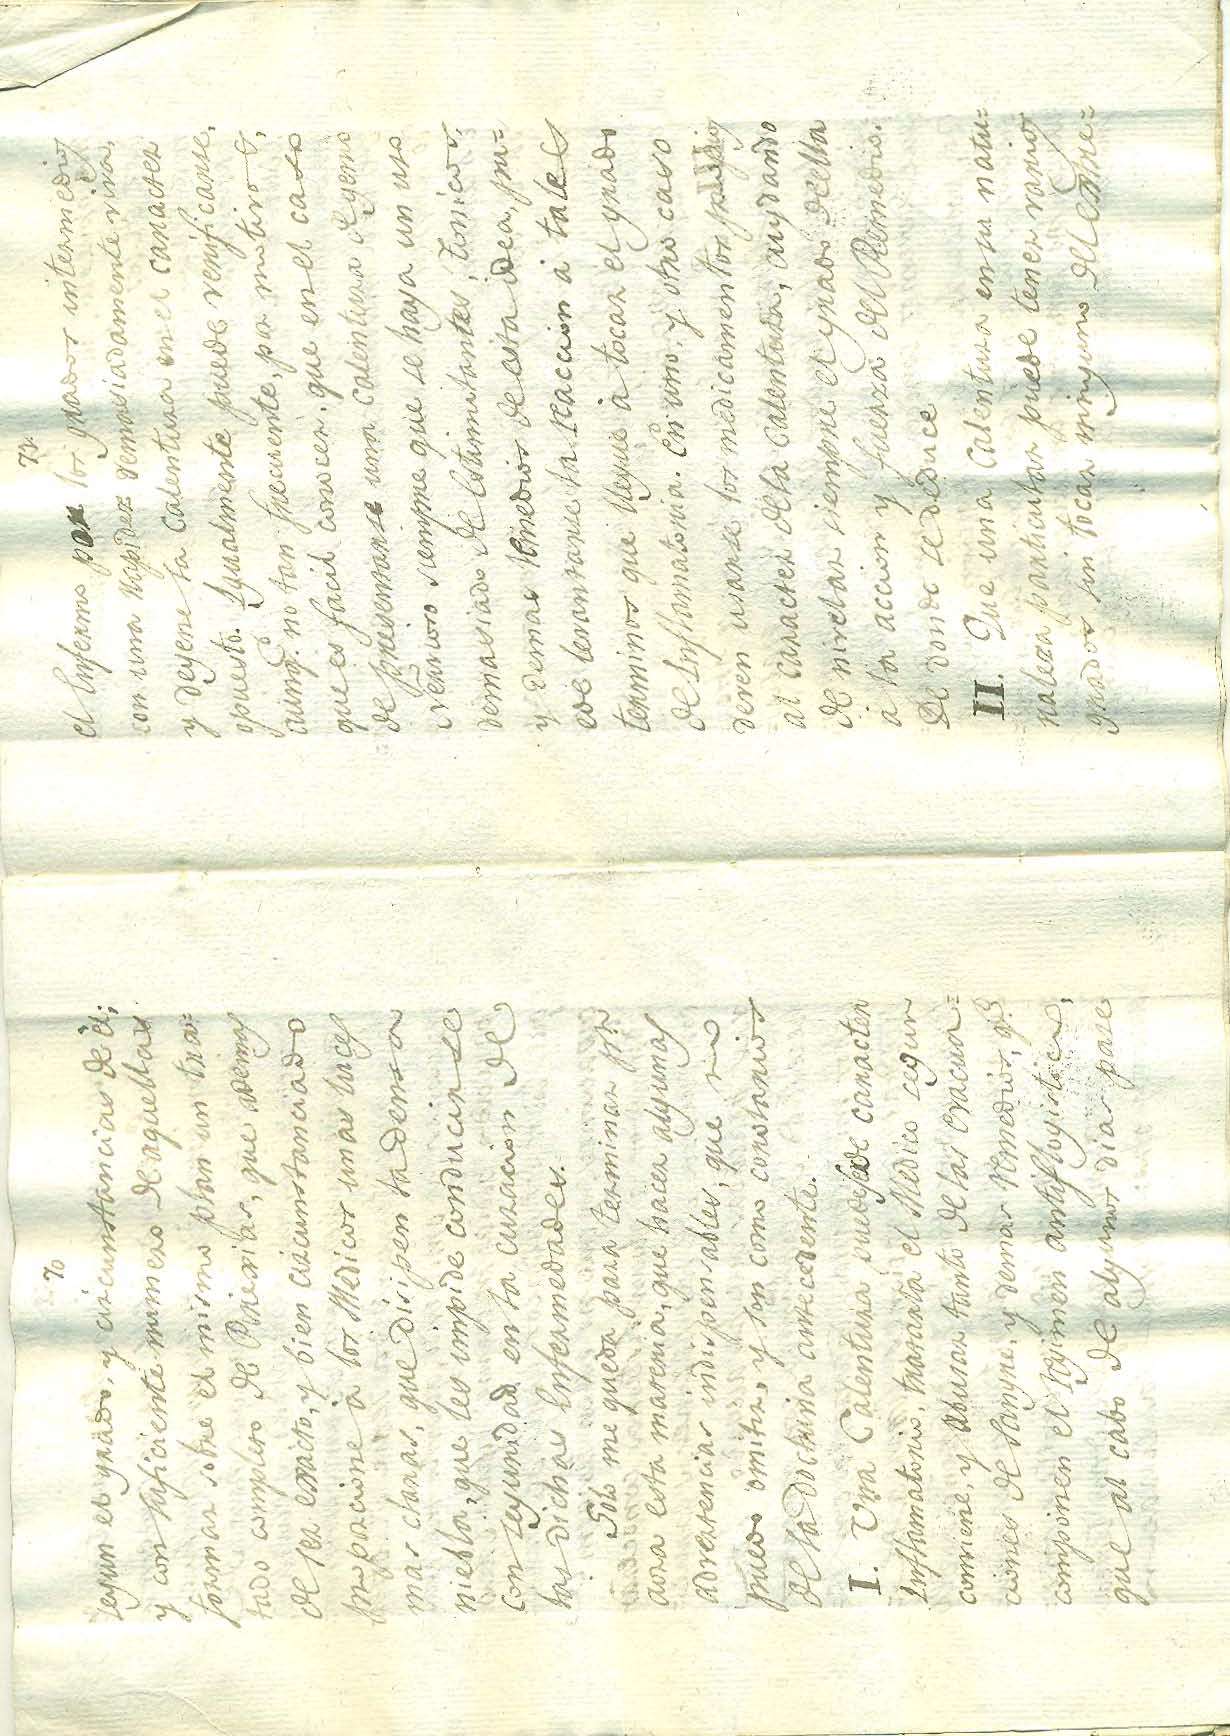 70
segun el grado, y circunstancias de el;
y con suficiente numero de aquellas
formar sobre el mismo plan un tra=
tado completo de Pirexias, que ademas
de ser exacto, y bien circunstanciado
proporcione à los Medicos unas luces
mas claras, que disipen la densa
niebla, que les impide conducirse
con seguridad en la curacion de
las dichas Enfermedades.
Solo me queda para terminar pr.
aora esta materia, que hacer algunas
advertencias indispensables, que no
puedo omitir, y son como corolarios
de la doctrina antecedente.
I. Una Calentura puede ser de caracter
Inflamatorio, tratarala el Medico segun
conviene, y abusar tanto de las evacua=
ciones de sangre, y demas remedios, q.e
componen el regimen antiflogistico,
que al cabo de algunos dias pase
71.
el Enfermo por los grados intermedios
con una rapidez demasiadamente viva,
y degenere la Calentura en el caracter
opuesto. Igualmente puede verificarse,
aunq.e no tan frecuente, por motivos,
que es facil conocer, que en el caso
de presentarse una calentura de genio
Nervioso siempre que se haya un uso
demasiado de Estimulantes, tonicos,
y demas remedios de esta idea, pu=
ede levantarse la reaccion à tales
terminos que llegue à tocar el grado
de Inflamatoria. En uno, y otro caso
deven usarse los medicamentos propios
al caracter de la calentura, cuydando
de nivelar siempre el grado de ella
à la accion y fuerza del Remedio.
De donde se deduce
II. Que una Calentura en su natu=
raleza particular puede tener varios
grados sin tocar ninguno del